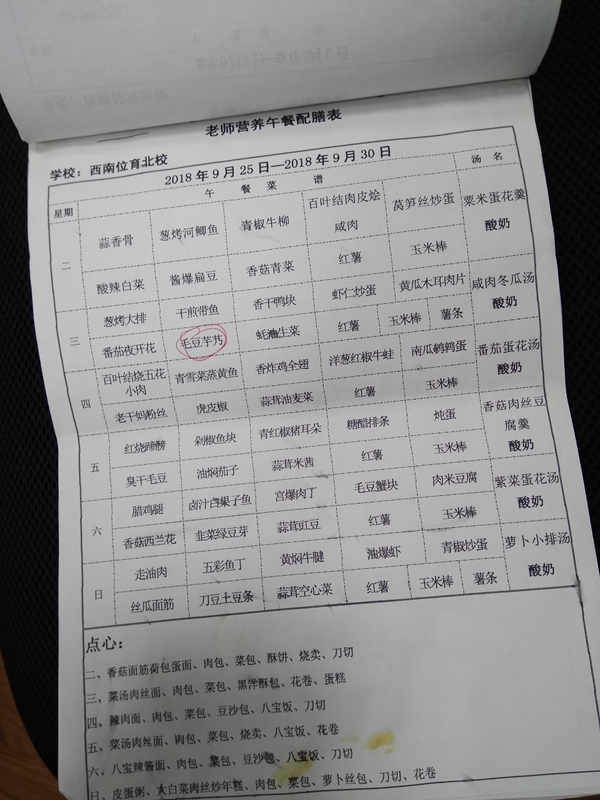 老师营养午餐配膳表
学校：西南位育北校
2018年9月25日—2018年9月30日
星期 午餐菜谱 汤名
二 蒜香骨 葱烤河鲫鱼 青椒牛柳 百叶结肉皮烩咸肉 莴笋丝炒蛋 粟米蛋花羹
酸辣白菜 酱爆扁豆 香菇青菜 红薯 玉米棒 酸奶
三 葱烤大排 干煎带鱼 香干鸭块 虾仁炒蛋 黄瓜木耳肉片 咸肉冬瓜汤
番茄夜开花 毛豆芋艿 蚝油生菜 红薯 玉米棒 薯条 酸奶
四 百叶结烧五花小肉 青雪菜蒸黄鱼 香炸鸡全翅 洋葱红椒牛蛙 南瓜鹌鹑蛋 番茄蛋花汤
老干妈粉丝 虎皮椒 蒜茸油麦菜 红薯 玉米棒 酸奶
五 红烧蹄髈 剁椒鱼块 青红椒猪耳朵 糖醋排条 炖蛋 香菇肉丝豆腐羹
臭干毛豆 油焖茄子 蒜茸米苋 红薯 玉米棒 酸奶
六 腊鸡腿 卤汁白果子鱼 宫爆肉丁 毛豆蟹块 肉米豆腐 紫菜蛋花汤
香菇西兰花 韭菜绿豆芽 蒜茸豇豆 红薯 玉米棒 酸奶
日 走油肉 五彩鱼丁 黄焖牛腱 油爆虾 青椒炒蛋 萝卜小排汤
丝瓜面筋 刀豆土豆条 蒜茸空心菜 红薯 玉米棒 薯条 酸奶
点心：
二、香菇面筋荷包蛋面、肉包、菜包、酥饼、烧卖、刀切
三、菜汤肉丝面、肉包、菜包、黑洋酥包、花卷、蛋糕
四、辣肉面、肉包、菜包、豆沙包、八宝饭、刀切
五、菜汤肉丝面、肉包、菜包、烧卖、八宝饭、花卷
六、八宝辣酱面、肉包、菜包、豆沙包、八宝饭、刀切
日、皮蛋粥、大白菜肉丝炒年糕、肉包、菜包、萝卜丝包、刀切、花卷